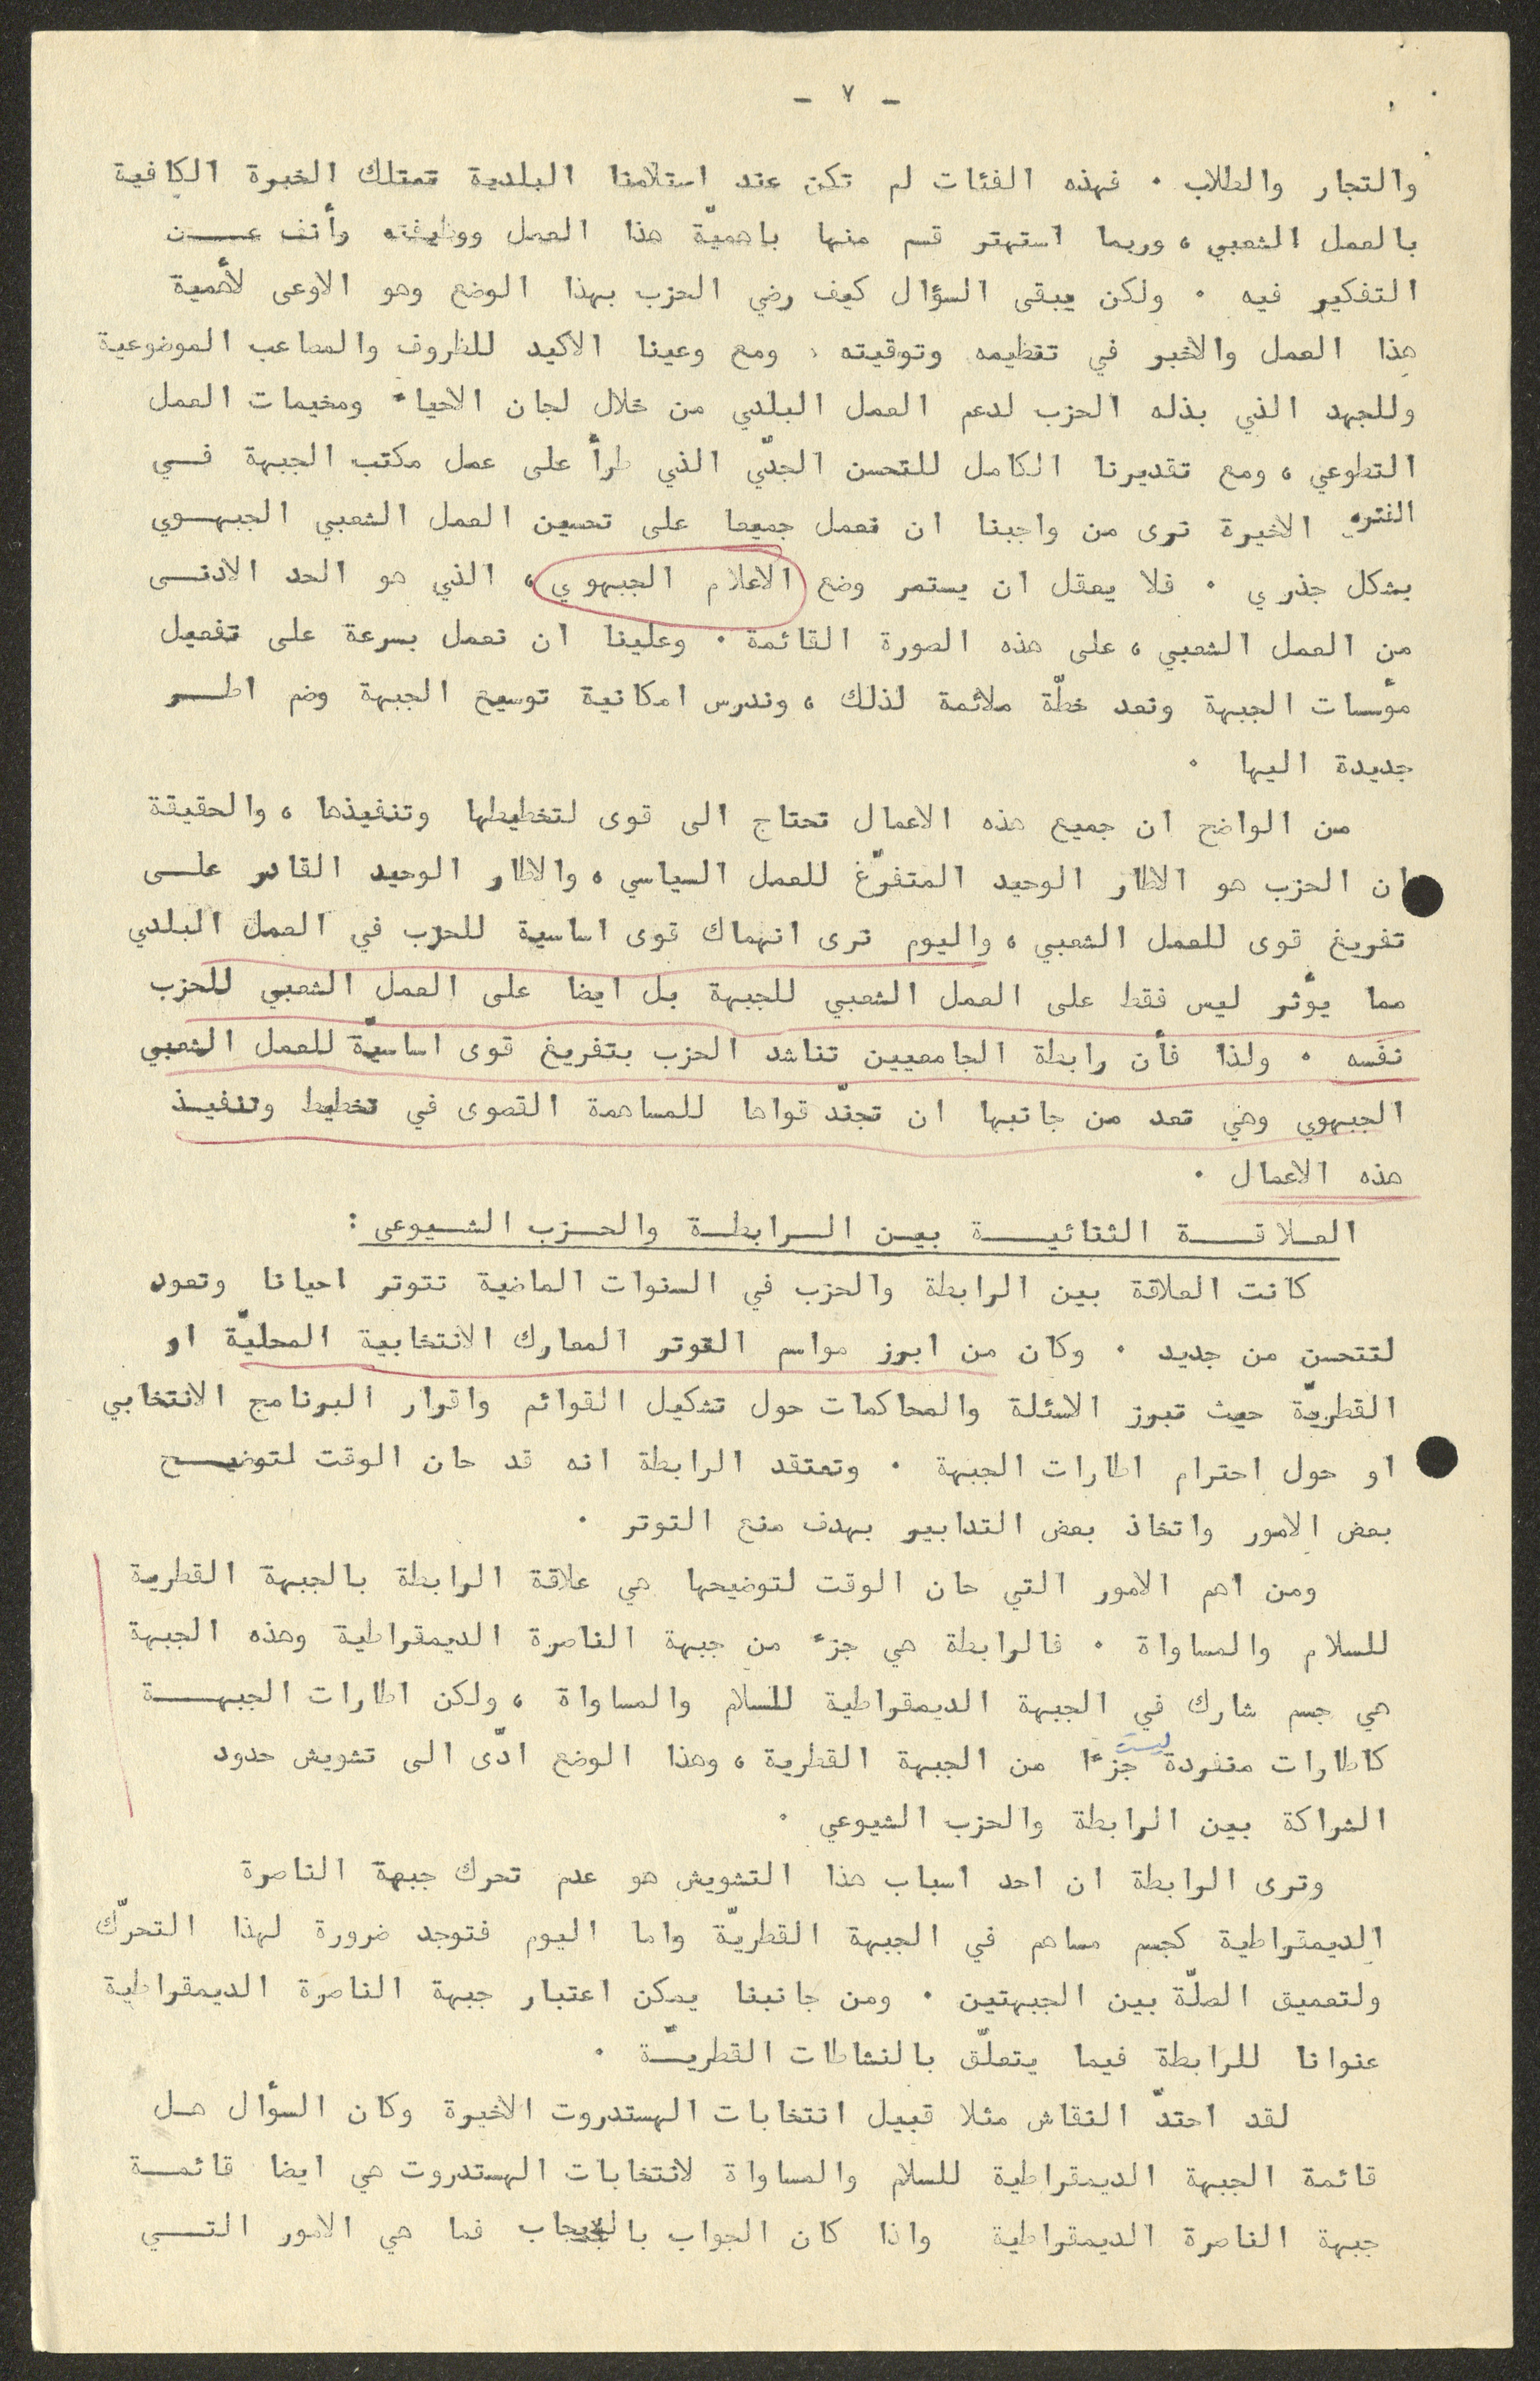 - ٧ -
والتجار والطلاب . فهذه الفئات لم تكن عند استلامنا البلدية تمتلك الخبرة الكافية
بالعمل الشعبي ، وربما استهتر قسم منها باهميّة هذا العمل ووظيفته وأنف عـــن
التفكير فيه . ولكن يبقى السؤال كيف رضي الحزب بهذا الوضع وهو الاوعى لأهمية
هذا العمل والاخبر في تنظيمه وتوقيته . ومع وعينا الاكيد للظروف والمصاعب الموضوعية
وللجهد الذي بذله الحزب لدعم العمل البلدي من خلال لجان الاحياء ومخيمات العمل
التطوعي ، ومع تقديرنا الكامل للتحسن الجدّي الذي طرأ على عمل مكتب الجبهة فــي
الفتره الاخيرة نرى من واجبنا ان نعمل جميعا على تحسين العمل الشعبي الجبهــوي
بشكل جذري . فلا يعقل ان يستمر وضع الاعلام الجبهوي ، الذي هو الحد الادنــى
من العمل الشعبي ، على هذه الصورة القائمة . وعلينا ان نعمل بسرعة على تفعيل
مؤسسات الجبهة ونعد خطّة ملائمة لذلك ، وندرس امكانية توسيع الجبهة وضم اطــر
جديدة اليها .
من الواضح ان جميع هذه الاعمال تحتاج الى قوى لتخطيطها وتنفيذها ، والحقيقة
ان الحزب هو الاطار الوحيد المتفرّغ للعمل السياسي ، والاطار الوحيد القادر علــى
تفريغ قوى للعمل الشعبي ، واليوم نرى انهماك قوى اساسية للحزب في العمل البلدي
مما يؤثر ليس فقط على العمل الشعبي للجبهة بل ايضا على العمل الشعبي للحزب
نفسه . ولذا فأن رابطة الجامعيين تناشد الحزب بتفريغ قوى اساسيّة للعمل الشعبي
الجبهوي وهي تعد من جانبها ان تجنّد قواها للمساهمة القصوى في تخطيط وتنفيـذ
هذه الاعمال .
العـلاقــة الثنائيــة بيـن الـرابطـة والحـزب الشـيوعي :
كانت العلاقة بين الرابطة والحزب في السنوات الماضية تتوتر احيانا وتعود
لتتحسن من جديد . وكان من ابرز مواسم التوتر المعارك الانتخابية المحليّة او
القطريّة حيث تبرز الاسئلة والمحاكمات حول تشكيل القوائم واقرار البرنامج الانتخابي
او حول احترام اطارات الجبهة . وتعتقد الرابطة انه قد حان الوقت لتوضيــح
بعض الامور واتخاذ بعض التدابير بهدف منع التوتر .
ومن اهم الامور التي حان الوقت لتوضيحها هي علاقة الرابطة بالجبهة القطرية
للسلام والمساواة . فالرابطة هي جزء من جبهة الناصرة الديمقراطية وهذه الجبهة
هي جسم شارك في الجبهة الديمقراطية للسلام والمساواة ، ولكن اطارات الجبهـــة
كاطارات منفردة ليست جزءًا من الجبهة القطرية ، وهذا الوضع ادّى الى تشويش حدود
الشراكة بين الرابطة والحزب الشيوعي .
وترى الرابطة ان احد اسباب هذا التشويش هو عدم تحرك جبهة الناصرة
الديمقراطية كجسم مساهم في الجبهة القطريّة واما اليوم فتوجد ضرورة لهذا التحرّك
ولتعميق الصلّة بين الجبهتين . ومن جانبنا يمكن اعتبار جبهة الناصرة الديمقراطية
عنوانا للرابطة فيما يتعلّق بالنشاطات القطريّــة .
لقد احتدّ النقاش مثلا قبيل انتخابات الهستدروت الاخيرة وكان السؤال هــل
قائمة الجبهة الديمقراطية للسلام والمساواة لانتخابات الهستدروت هي ايضا قائمــة
جبهة الناصرة الديمقراطية واذا كان الجواب بالايجاب فما هي الامور التــي